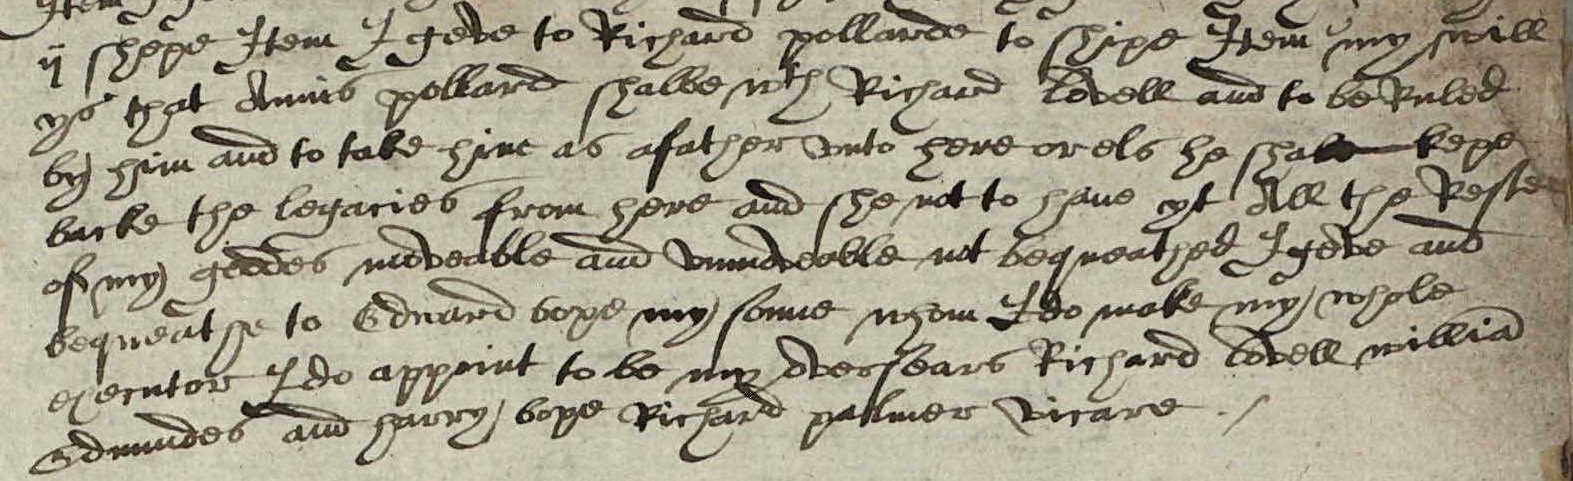 ij shepe Item I geve to Richard pollarde to shepe Item my will
ys that Annis pollard shalbe wth Richard Lovell and to be Ruled
by him and to take him as a father vnto here or els he shall kepe
backe the legacies from here and she not to have yt All the Reste
of my goodes moveable and vnmoveable not bequeathed I geve and
bequeathe to Edward bope my sonne whom I do make my whole
executor I do appoint to be my oversears Richard Lovell willia
Edmundes and harry bope Richard palmer vicare